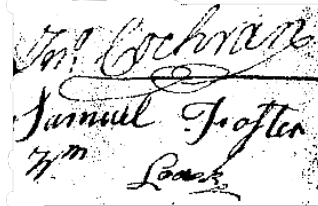 Jnº Cochran
Samuel Foster
Wm